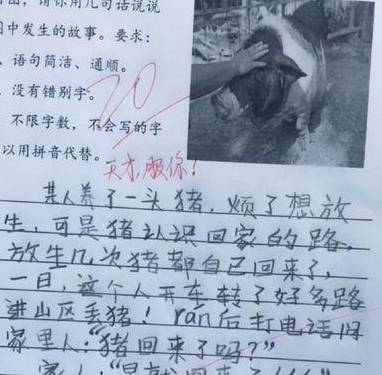 图，请你用几句话说说
图中发生的故事。要求：
、语句简洁、通顺。
、没有错别字。
、不限字数，不会写的字
以用拼音代替。
20
天才,服你！
某人养了一头猪，烦了想放
生，可是猪认识回家的路，
放生几次猪都自己回来了，
一日，这个人开车转了好多路
进山区丢猪！ran后打电话问
家里人：“猪回来了吗？”
家人：“早就回来了